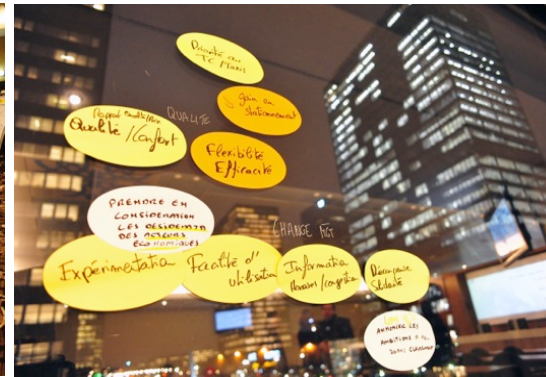 Priorité au
TC Mais
gain en
stationnement
Rapport Qualité/Prix
Qualité /Confort
QUALITE
Flexibilité
Efficacité
PRENDRE EN
CONSIDERATION
LES DESIDERATA
DES ACTEURS
ÉCONOMIQUES
CHANGE MGT
Expérimentation
Facilité d'
utilisation
Information
/congestion
ANNONCER LES
AMBITIONS